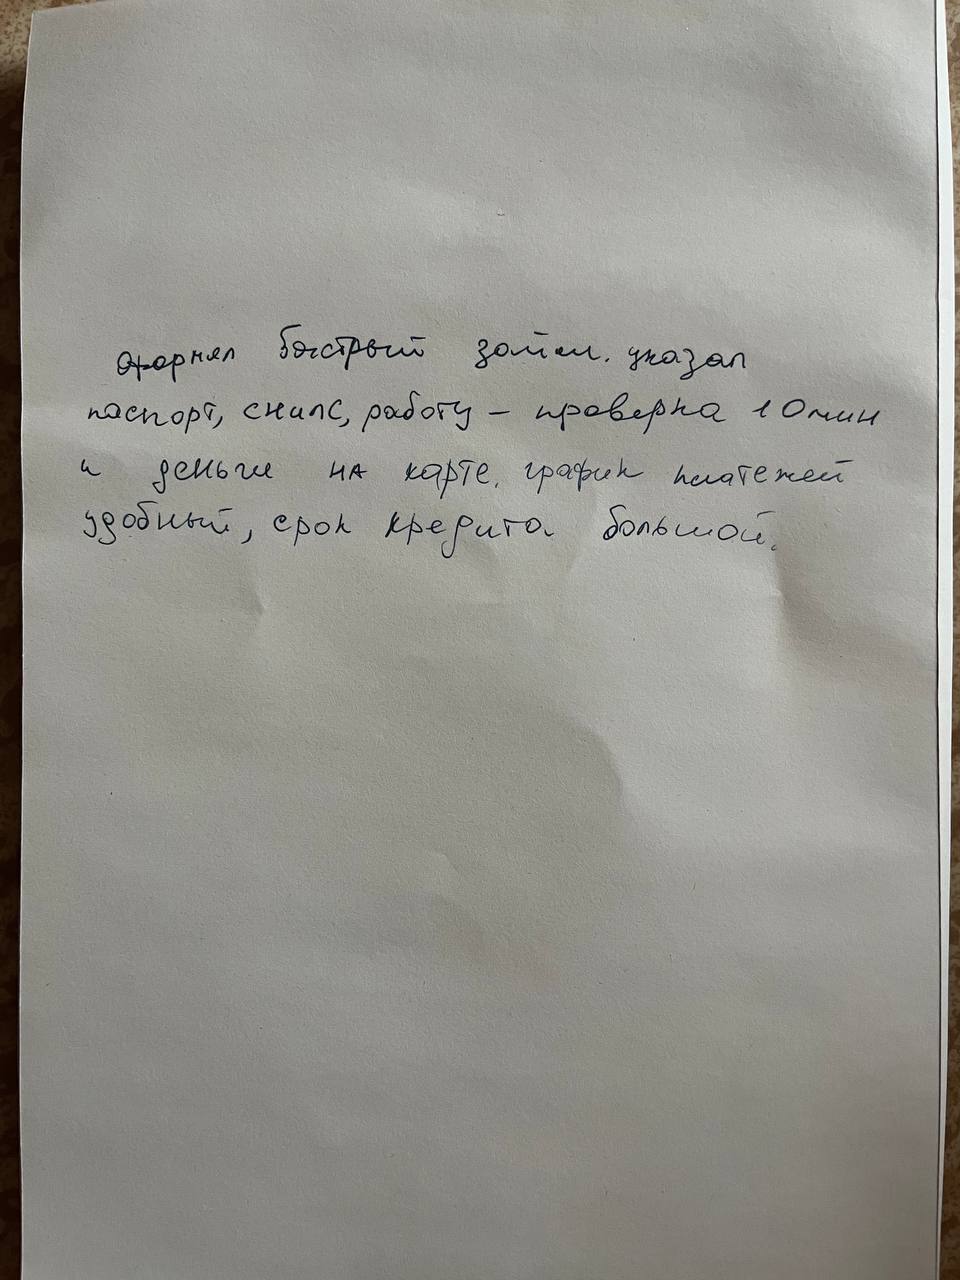 быстрый займ. указал
паспорт, снилс, работу – проверка 10 мин
и деньги на карте. график платежей
удобный, срок кредита большой.